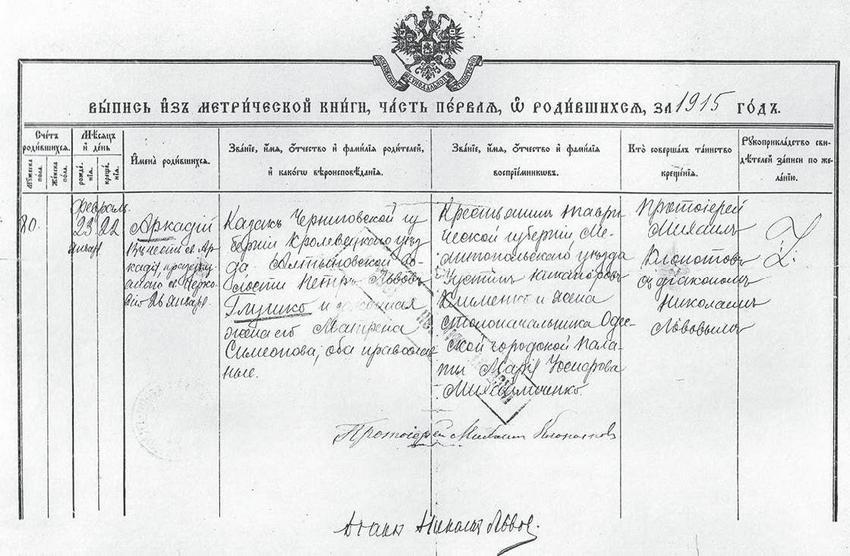 ВЫПИСЬ ИЗЪ МЕТРИЧЕСКОЙ КНИГИ, ЧАСТЬ ПЕРВАЯ, Ѡ РОДИВШИХСЯ, ЗА 1915 ГОДЪ.
Счетъ родившихся.
Мужеска пола.
Женска пола.
Мѣсяцъ и день
рожденія.
крещенія.
Имена родившихся.
Званіе, имя, отчество и фамилія родителей,
и какого вѣроисповѣданія.
Званіе, имя, отчество и фамилія
воспріемниковъ.
Кто совершалъ таинство
крещенія.
Рукоприкладство свидѣтелей записи по желанію.
80.
Февраль
23 22
Январь
Аркадій
Казакъ Черниговской гу
берніи Кролевецкаго уѣз
да Алтыновской во
лости Петръ Львовъ
Глушко и законная
жена его Матрена
Симеонова, оба православ
ные.
Крестьянинъ Таври
ческой губерніи Ме
литопольскаго уѣзда
Устинъ Никифоровъ
Клименко и жена
столоначальника Одес
ской городской пала
ты Марія
Протоіерей
Михаилъ
съ діакономъ
Николаемъ
Львовымъ
Протоіерей Михаилъ
Діаконъ Николай Львов.